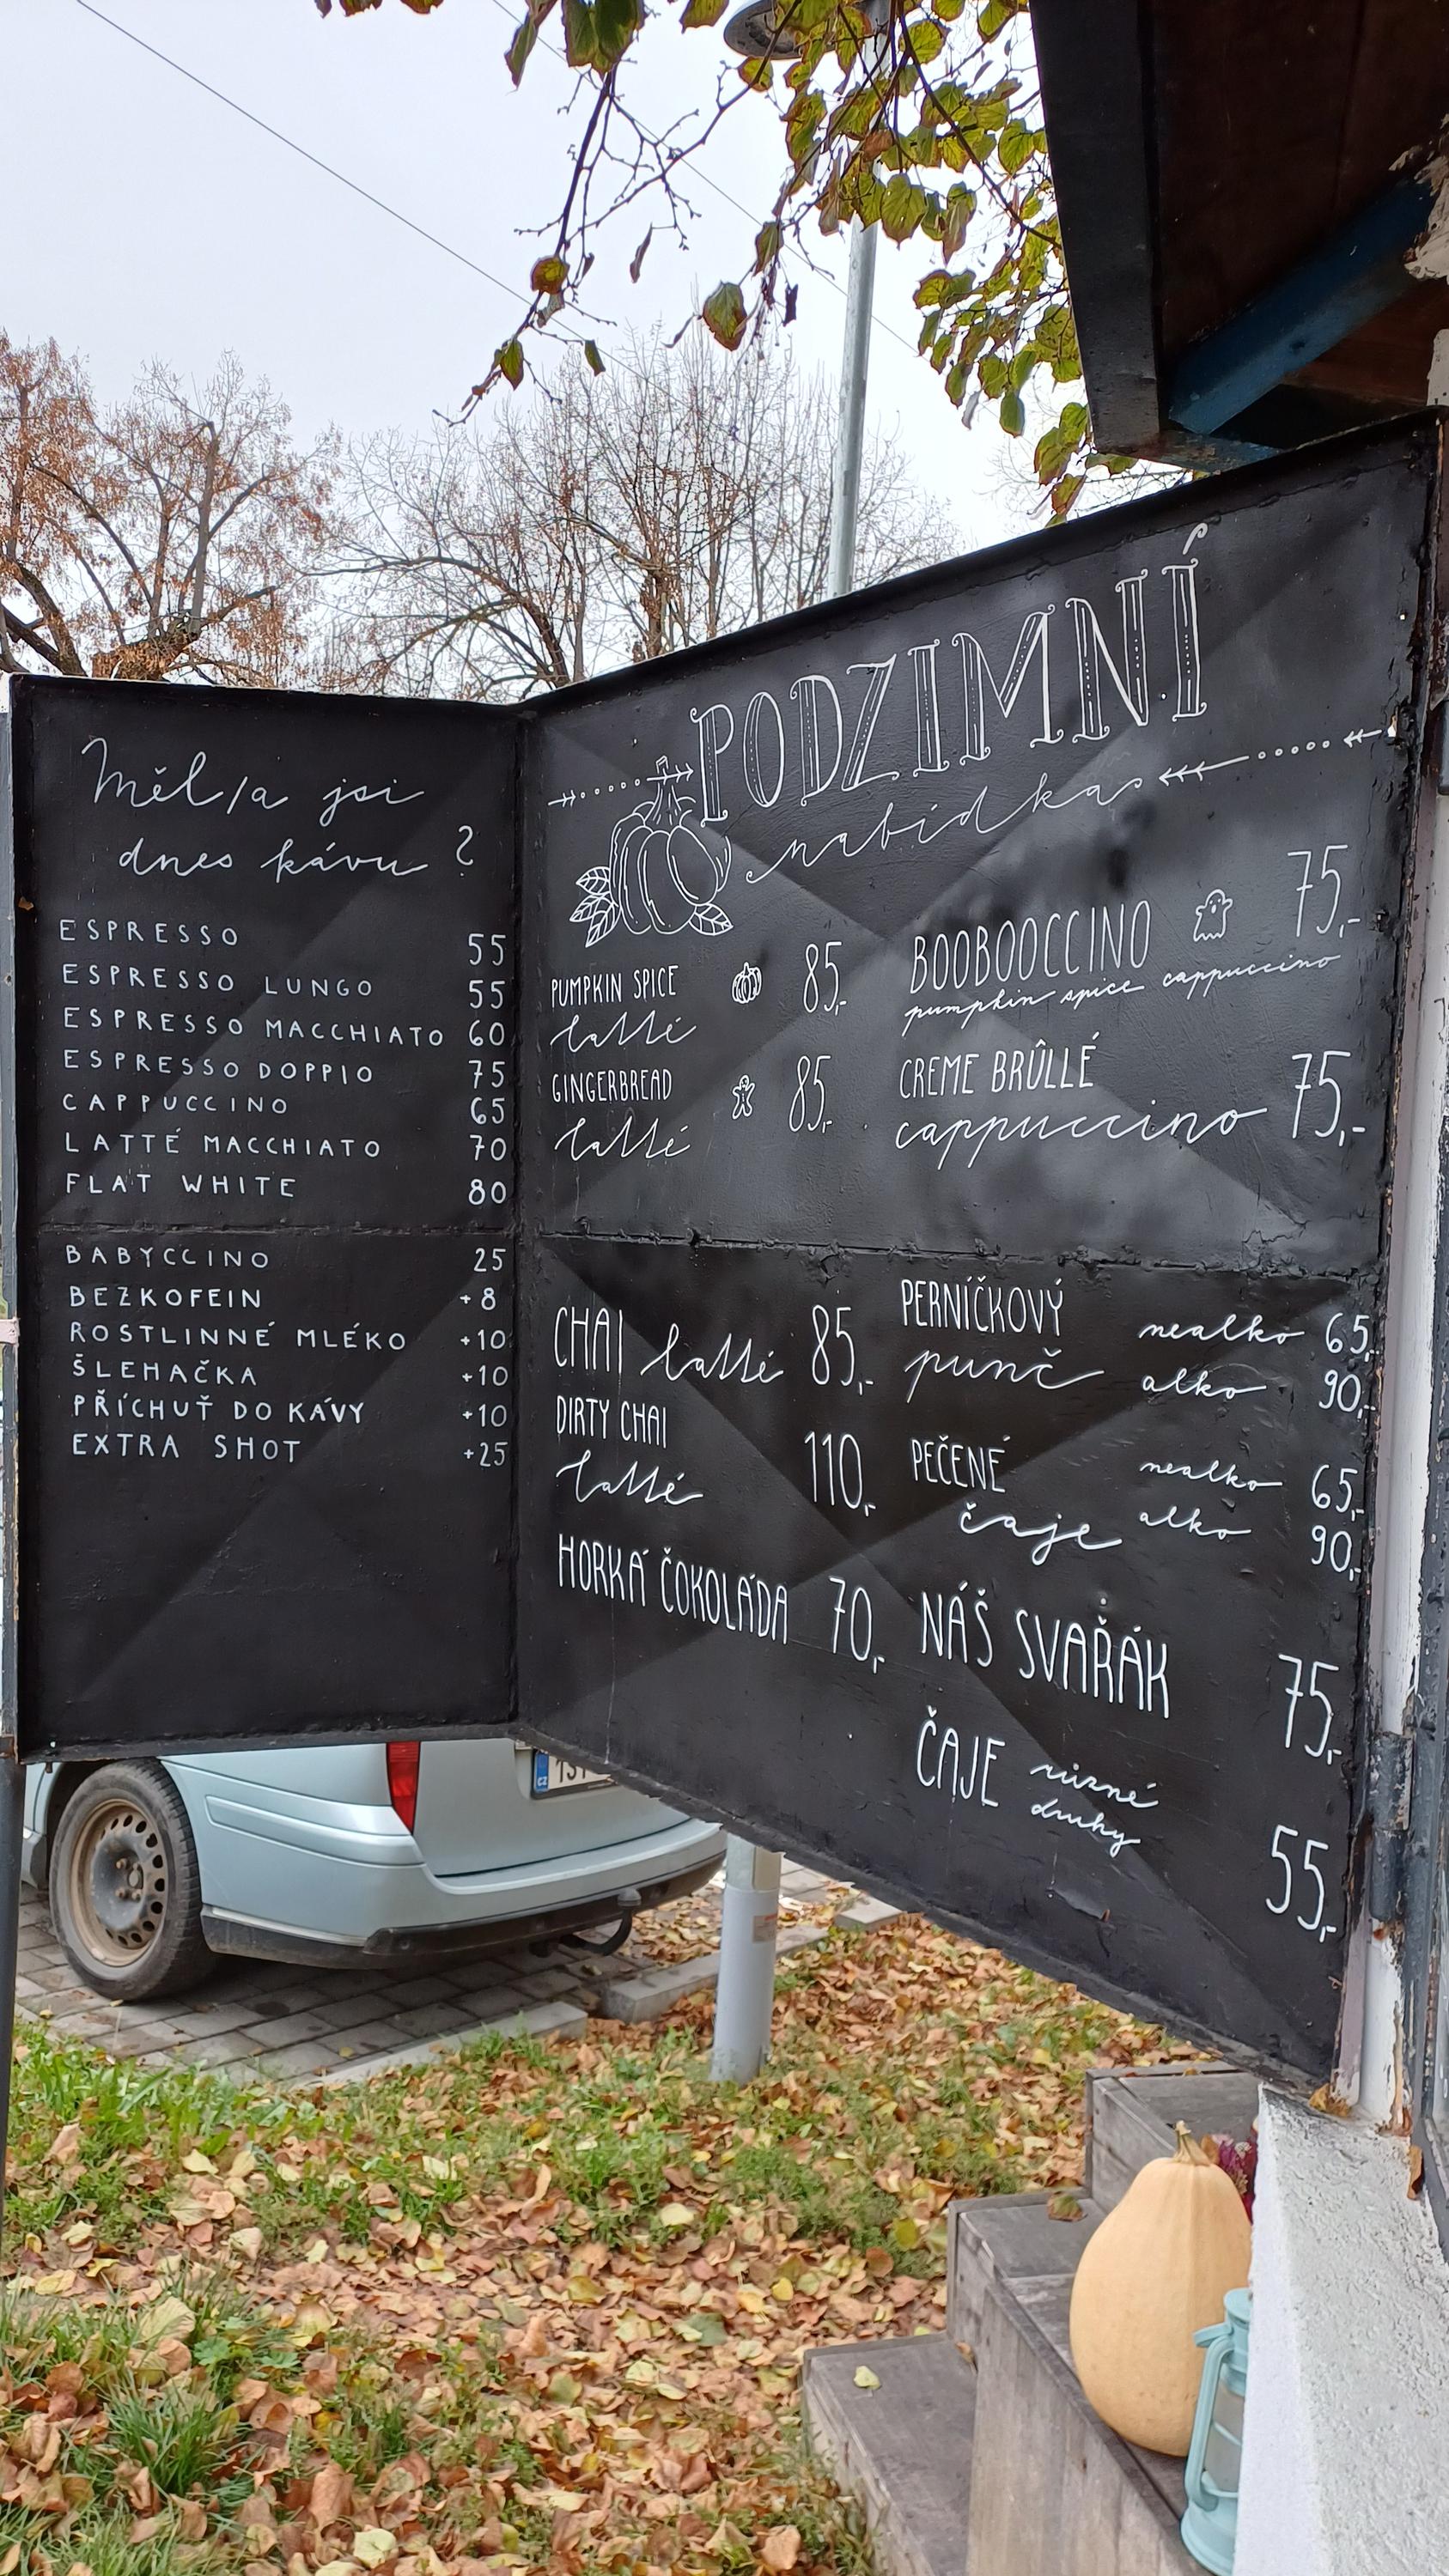 Měl/a jsi
dnes kávu ?
ESPRESSO 55
ESPRESSO LUNGO 55
ESPRESSO MACCHIATO 60
ESPRESSO DOPPIO 75
CAPPUCCINO 65
LATTÉ MACCHIATO 70
FLAT WHITE 80
BABYCCINO 25
BEZKOFEIN +8
ROSTLINNÉ MLÉKO +10
ŠLEHAČKA +10
PŘÍCHUŤ DO KÁVY +10
EXTRA SHOT +25
PODZIMNÍ
nabídka
PUMPKIN SPICE 85,-
latté
GINGERBREAD 85,-
latté
BOOBOOCCINO 75,-
pumpkin spice cappuccino
CREME BRÛLLÉ
cappuccino 75,-
CHAI latté 85,-
DIRTY CHAI
latté 110,-
HORKÁ ČOKOLÁDA 70,-
PERNÍČKOVÝ nealko 65,-
punč alko 90,-
PEČENÉ nealko 65,-
čaje alko 90,-
NÁŠ SVAŘÁK 75,-
ČAJE různé
druhy 55,-
CZ